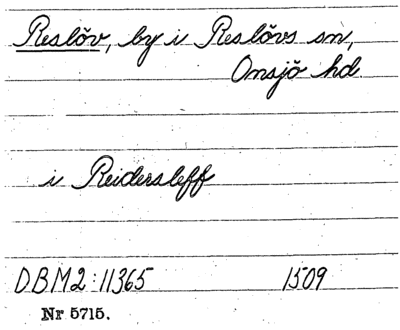 Reslöv, by i Reslövs sn,
Onsjö hd
i Reidersleff
D.B.M2:11365 1509
Nr 5715.